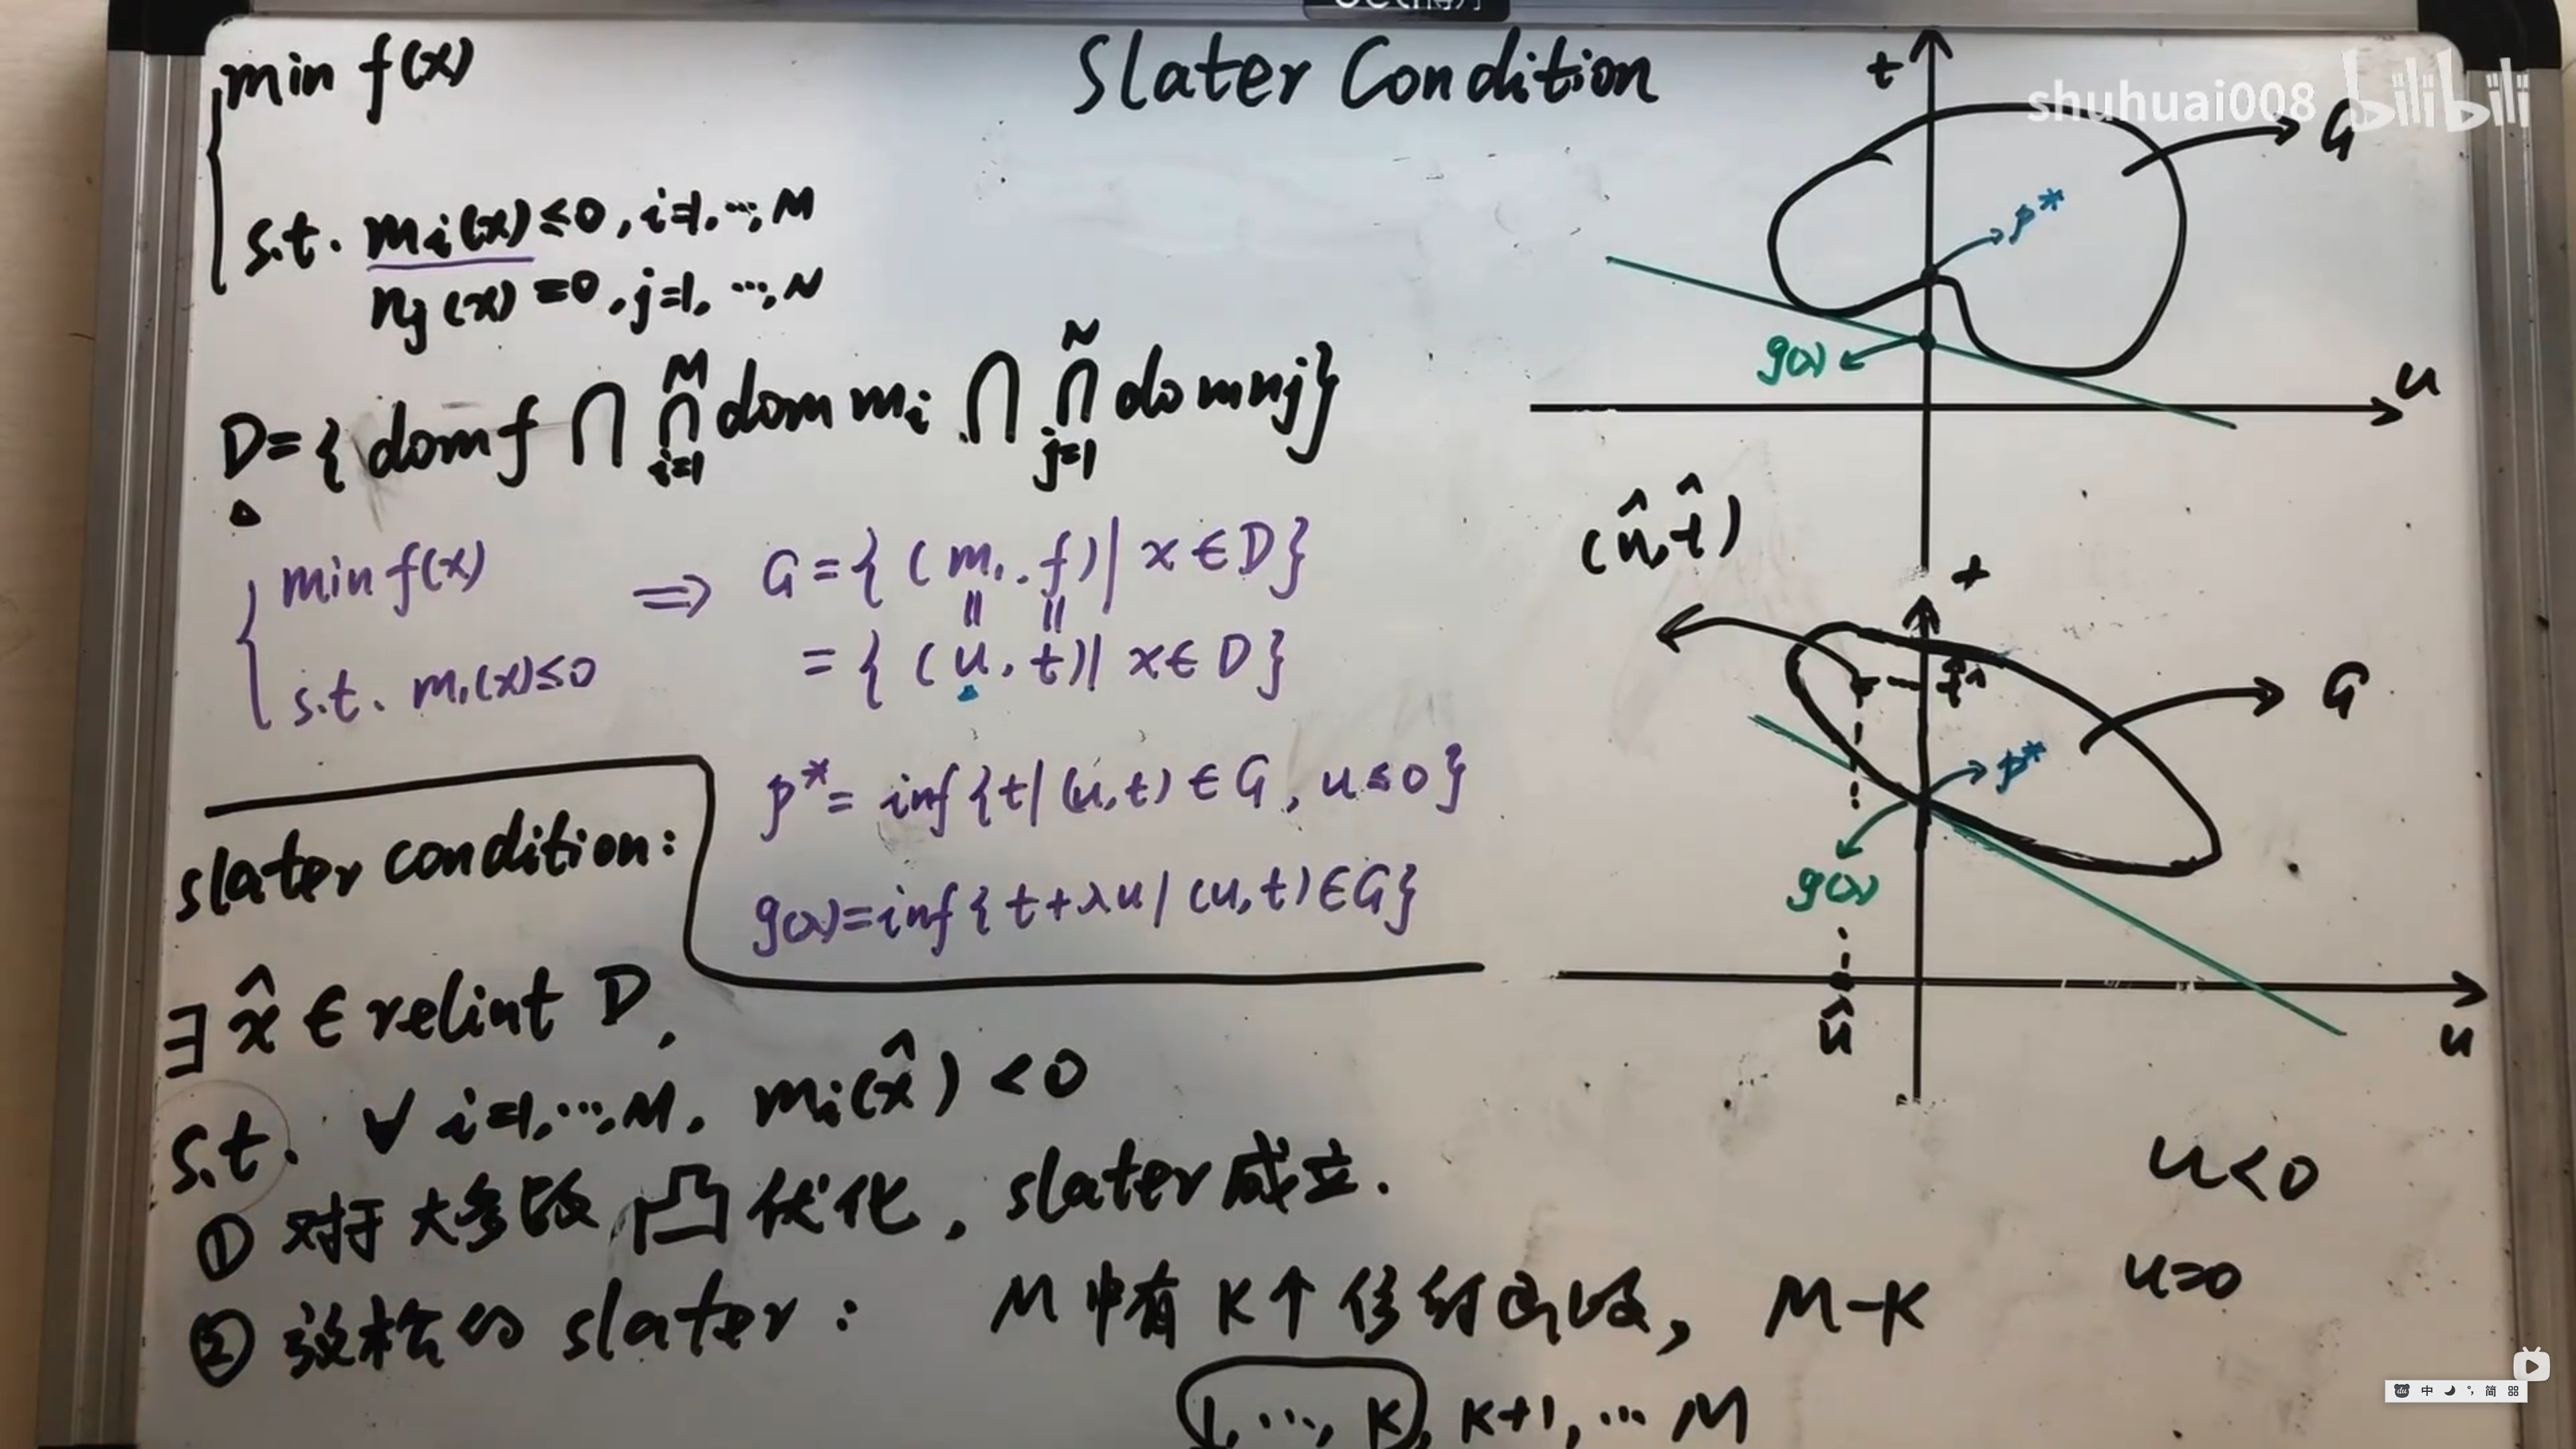 Slater Condition
min f(x)
s.t. mi(x)≤0, i=1, ..., M
nj(x)=0, j=1, ..., N
D={ dom f ∩ ⋂_{i=1}^{M} dom mi ∩ ⋂_{j=1}^{N} dom nj}
min f(x)
s.t. m1(x)≤0
⇒ G={ (m1, f) | x∈D}
= { (u, t) | x∈D}
p* = inf{t | (u,t)∈G, u≤0}
g(λ)=inf{t+λu | (u,t)∈G}
slater condition:
∃ x̂ ∈ relint D,
s.t. ∀ i=1, ..., M, mi(x̂) <0
① 对于大多数凸优化, slater成立.
② 放松的 slater: M中有K个仿射函数, M-K
1, ..., K, K+1, ... M
t
shuhuai008 bilibili
G
p*
g(λ)
u
(û, t̂)
t
t̂
G
p*
g(λ)
û
u
u<0
u=0
中 简